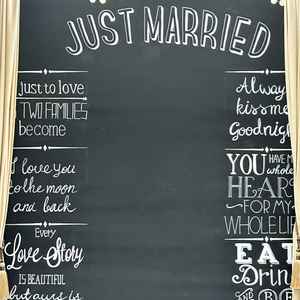 JUST MARRIED
just to love
TWO FAMILIES
become
I love you
to the moon
and back
Every
Love Story
IS BEAUTIFUL
but ours is
Always
kiss me
Goodnight
YOU HAVE MY
whole
HEART
FOR MY
WHOLE LIFE
EAT
Drin